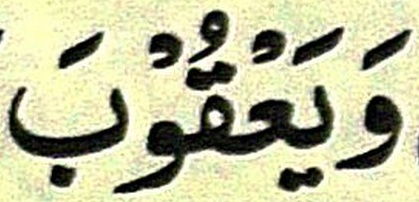 وَيَعْقُوْبَ